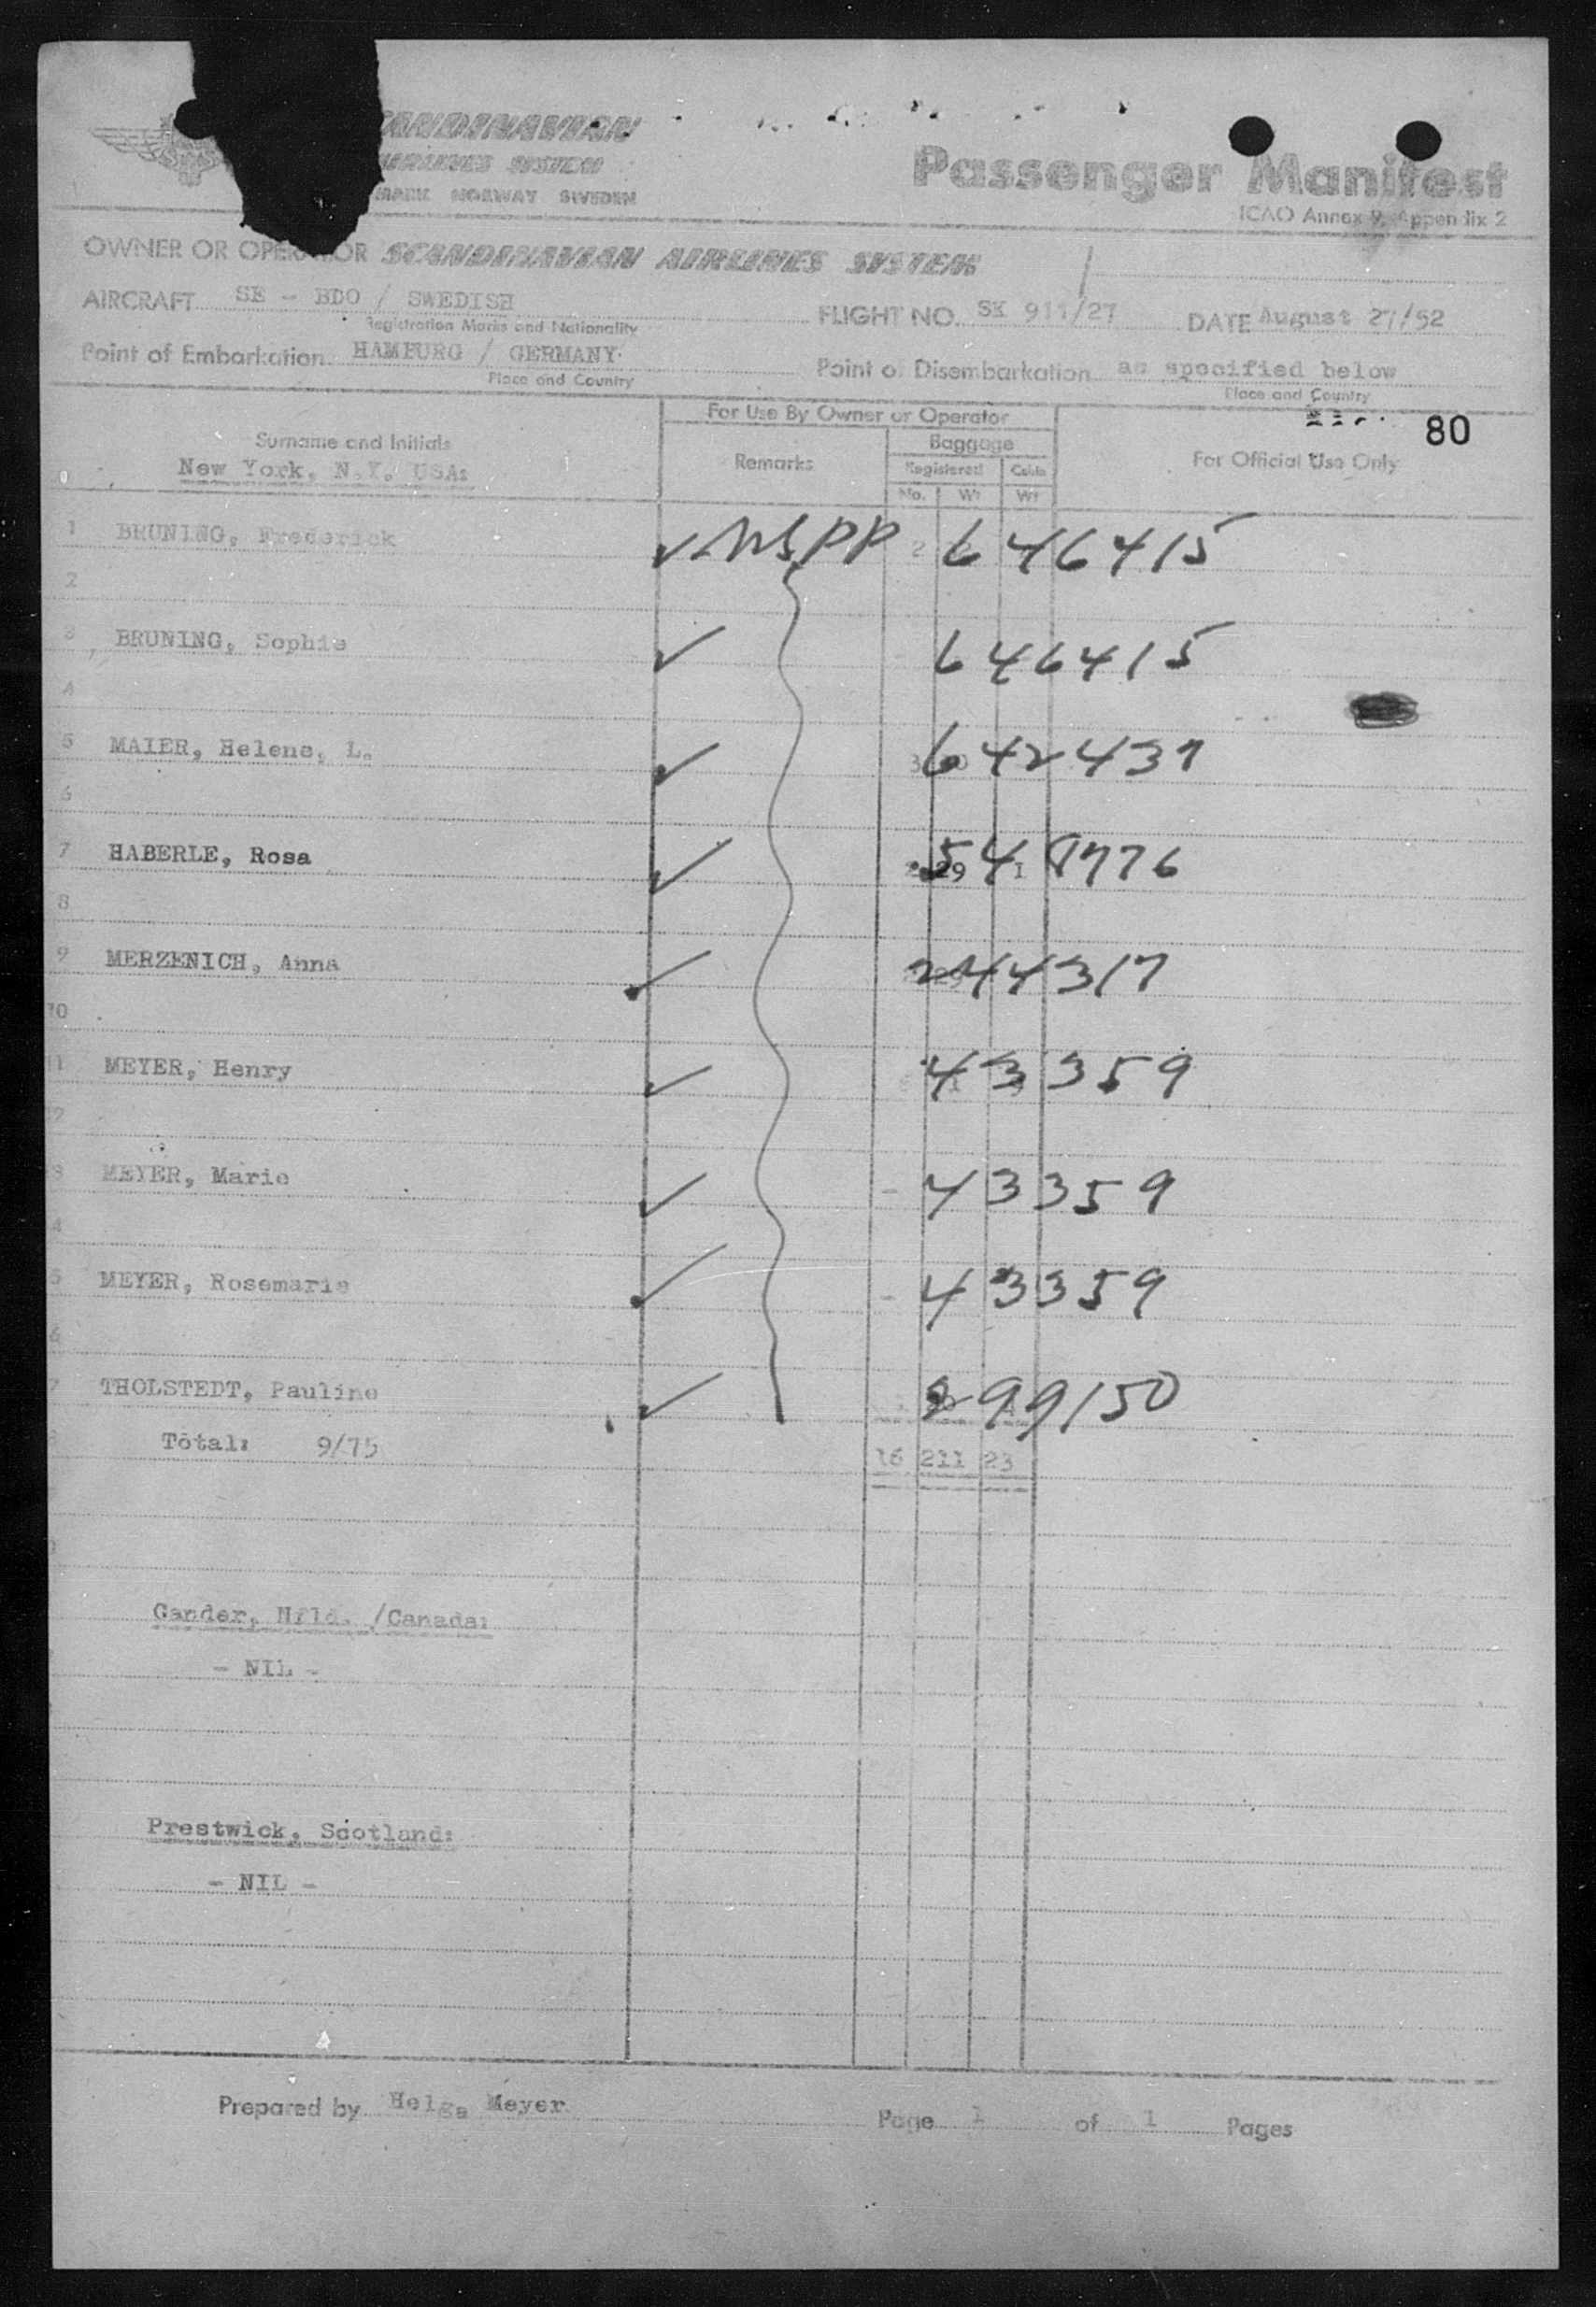 SCANDINAVIAN
AIRLINES SYSTEM
MARK NORWAY SWEDEN
Passenger Manifest
ICAO Annex 9, Appendix 2
OWNER OR OPERATOR SCANDINAVIAN AIRLINES SYSTEM
AIRCRAFT SE - BDO / SWEDISH FLIGHT NO. SK 911/27 DATE August 27/52
Registration Marks and Nationality
Point of Embarkation HAMBURG / GERMANY. Point of Disembarkation as specified below
Place and Country Place and Country
For Use By Owner or Operator 80
Surname and Initials Remarks Baggage For Official Use Only
New York, N.Y. USA: Registered Cabin
No. Wt Wt
1 BRUNING, Frederick ✓ USPP 2 646415
2
3 BRUNING, Sophie ✓ 646415
4
5 MAIER, Helene, L. ✓ 3 642437
6
7 HABERLE, Rosa ✓ 29 1 548776
8
9 MERZENICH, Anna ✓ 244317
10
11 MEYER, Henry ✓ 43359
12
13 MEYER, Marie ✓ - 43359
14
15 MEYER, Rosemarie ✓ - 43359
16
17 THOLSTEDT, Pauline ✓ 299150
Total: 9/75 16 211 23
Gander, Nfld. /Canada:
- NIL -
Prestwick, Scotland:
- NIL -
Prepared by Helga Meyer Page 1 of 1 Pages